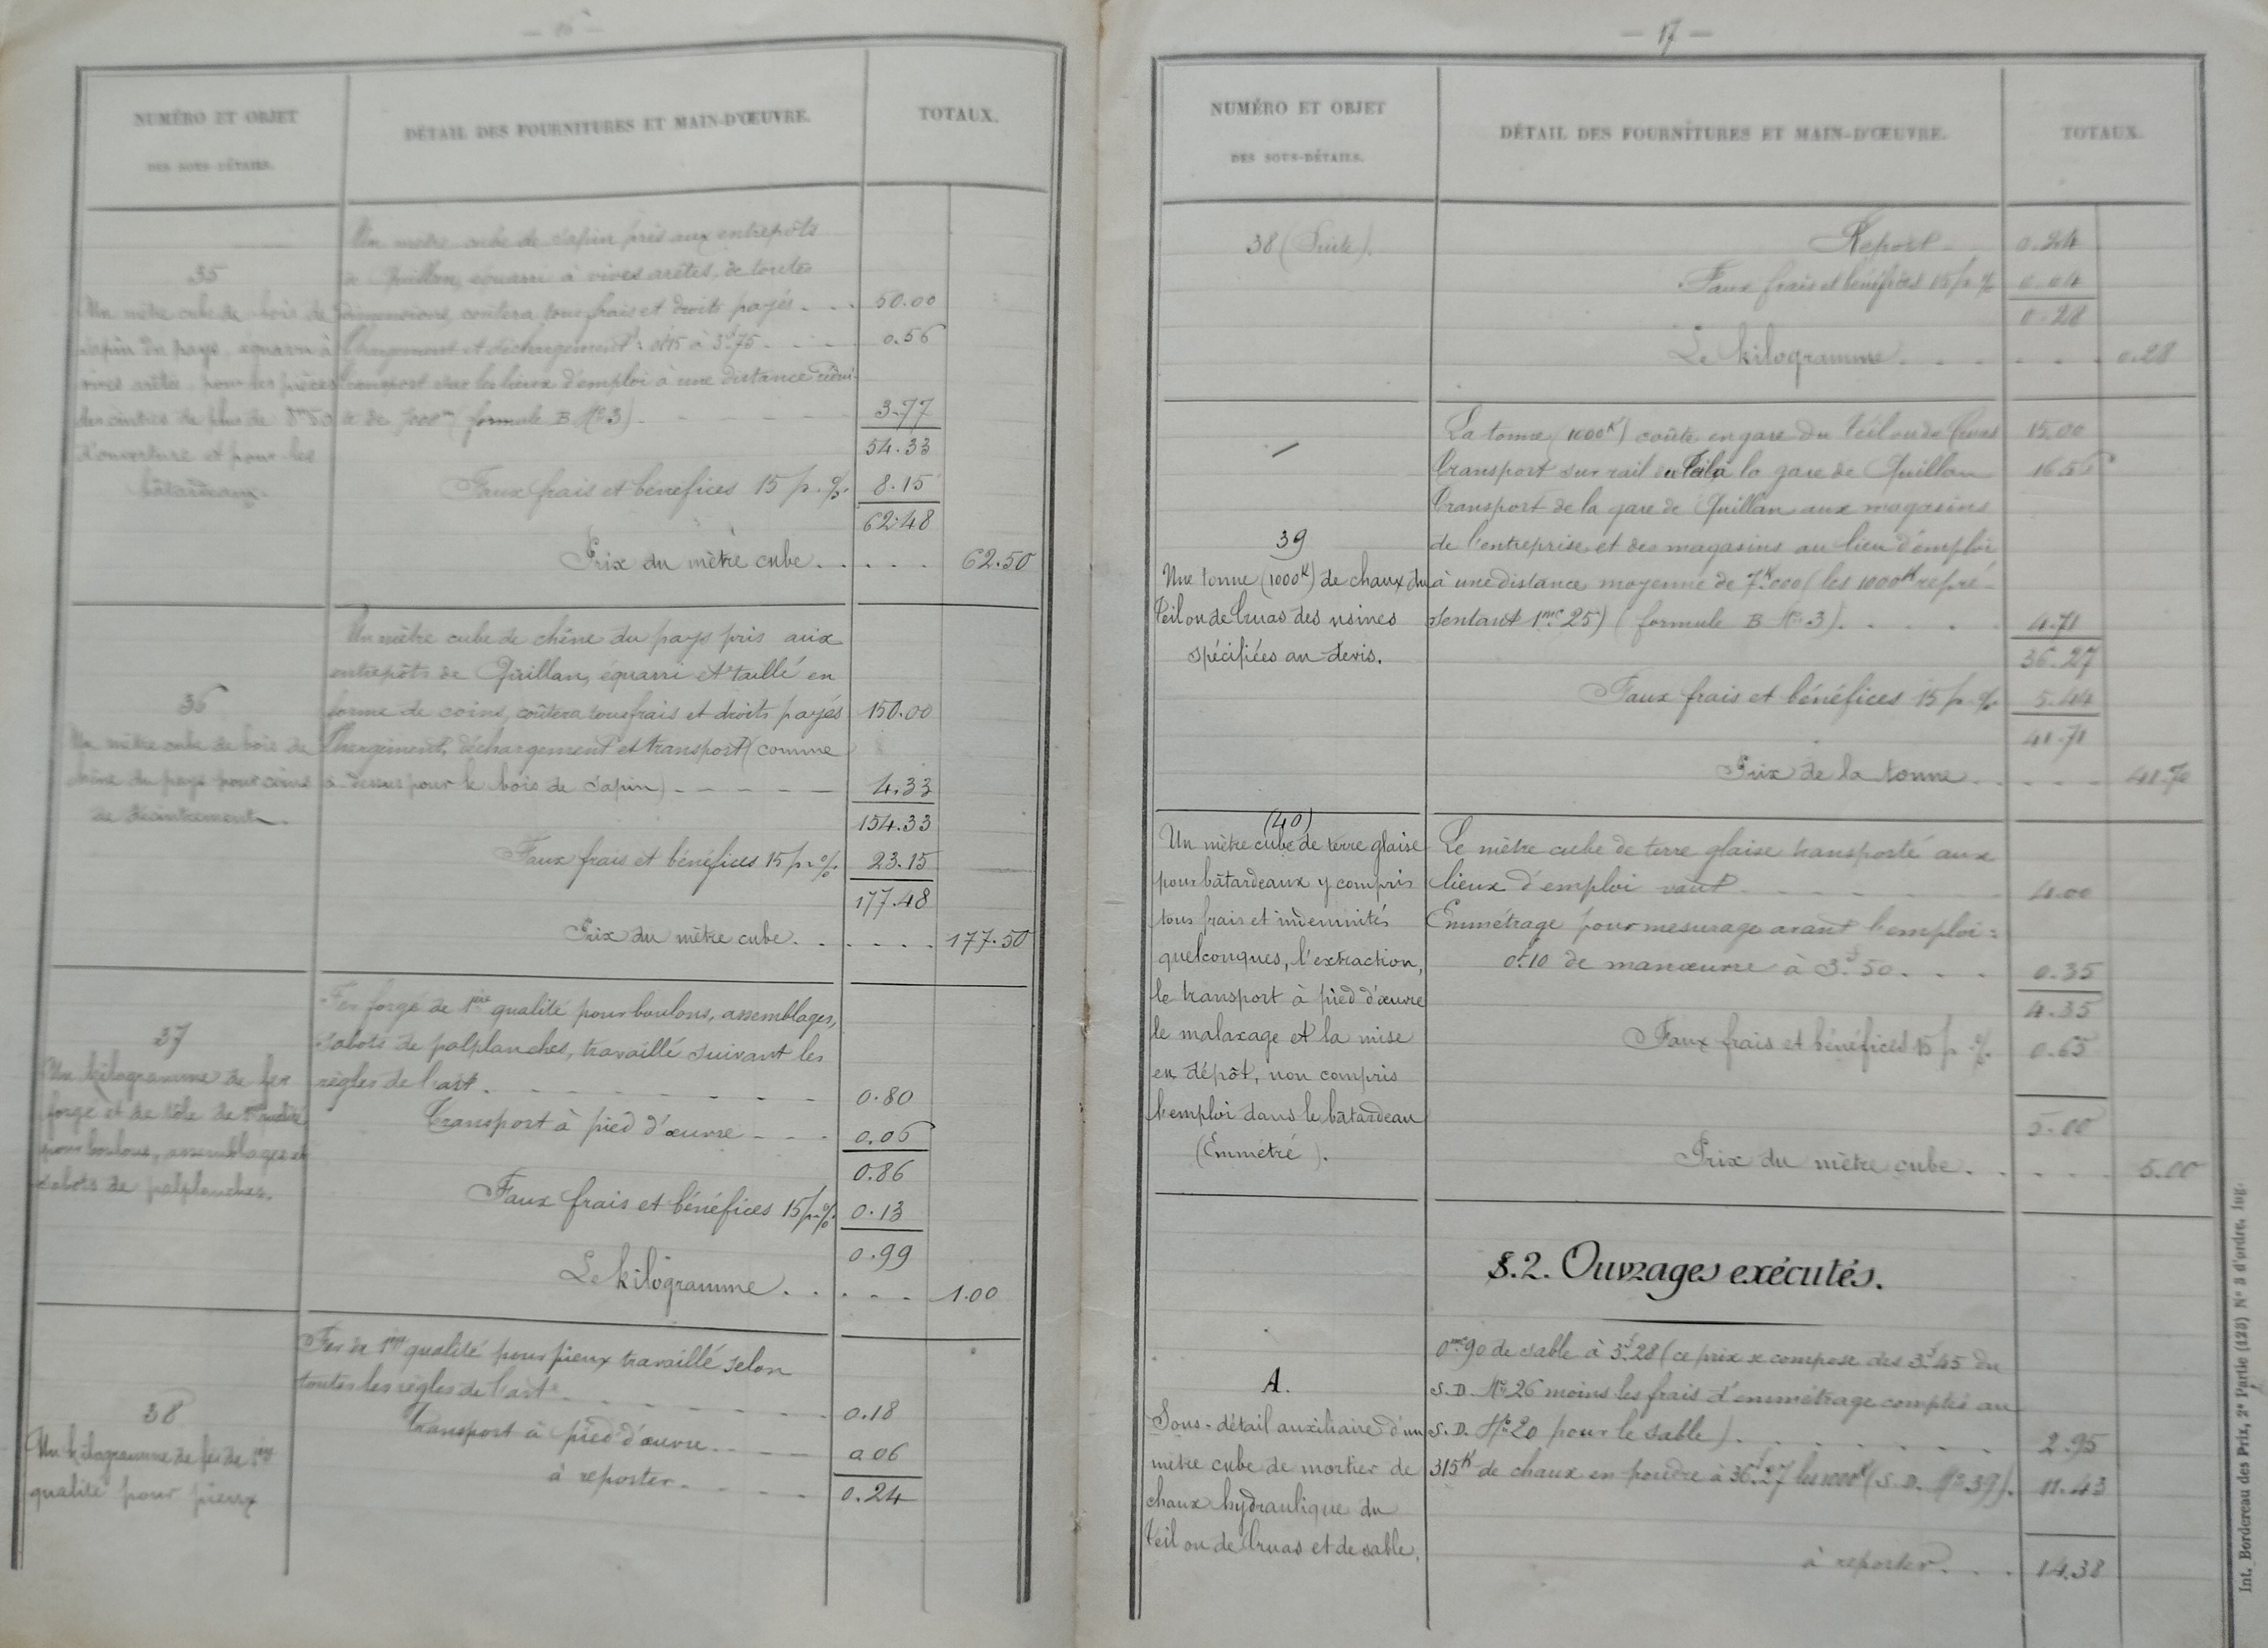 — 16 —
NUMÉRO ET OBJET
DES SOUS-DÉTAILS.
DÉTAIL DES FOURNITURES ET MAIN-D'ŒUVRE.
TOTAUX.
35
Un mètre cube de bois de
sapin du pays, équarri à
vives arêtes, pour les pièces
des cintres de plus de 8m50
d'ouverture et pour les
bâtardeaux.
Un mètre cube de sapin pris aux entrepôts
de Quillan, équarri à vives arêtes, de toutes
dimensions, coûtera tous frais et droits payés . . . 50.00
Chargement et déchargement: 0j15 à 3f75 . . . 0.56
Transport sur les lieux d'emploi à une distance rédui-
te de 7000m (formule B No 3) - - - 3.77
54.33
Faux frais et bénéfices 15 p. % 8.15
62.48
Prix du mètre cube . . . . . 62.50
36
Un mètre cube de bois de
chêne du pays pour coins
de décintrement.
Un mètre cube de chêne du pays pris aux
entrepôts de Quillan, équarri et taillé en
forme de coins, coûtera tous frais et droits payés 150.00
Chargement, déchargement et transport (comme
ci-dessus pour le bois de sapin) - - - - - 4.33
154.33
Faux frais et bénéfices 15 p. % 23.15
177.48
Prix du mètre cube . . . . . . 177.50
37
Un kilogramme de fer
forgé et de tôle de 1ère qualité
pour boulons, assemblages et
sabots de palplanches.
Fer forgé de 1ère qualité pour boulons, assemblages,
sabots de palplanches, travaillé suivant les
règles de l'art . - - - - - - - 0.80
Transport à pied d'œuvre - - - 0.06
0.86
Faux frais et bénéfices 15 p. % 0.13
0.99
Le kilogramme . . . . . 1.00
38
Un kilogramme de fer de 1ère
qualité pour pieux
Fer de 1ère qualité pour pieux travaillé selon
toutes les règles de l'art - - - - - - - 0.18
Transport à pied d'œuvre . - - - 0.06
à reporter . - - - 0.24
— 17 —
NUMÉRO ET OBJET
DES SOUS-DÉTAILS.
DÉTAIL DES FOURNITURES ET MAIN-D'ŒUVRE.
TOTAUX.
38 (Suite).
Report 0.24
Faux frais et bénéfices 15 p. % 0.04
0.28
Le kilogramme . . . . . . . 0.28
39
Une tonne (1000K) de chaux du
Teil ou de Cruas des usines
spécifiées au devis.
La tonne (1000K) coûte en gare du Teil ou de Cruas 15.00
Transport sur rail du Teil à la gare de Quillan 16.56
Transport de la gare de Quillan aux magasins
de l'entreprise et des magasins au lieu d'emploi
à une distance moyenne de 7K000 (les 1000K repré-
sentant 1mc25) (formule B No 3) . . . . 4.71
36.27
Faux frais et bénéfices 15 p. % 5.44
41.71
Prix de la tonne . . . . . 41.70
(40)
Un mètre cube de terre glaise
pour bâtardeaux y compris
tous frais et indemnités
quelconques, l'extraction,
le transport à pied d'œuvre
le malaxage et la mise
en dépôt, non compris
l'emploi dans le bâtardeau
(Emmétré).
Le mètre cube de terre glaise transporté aux
lieux d'emploi vaut - - - - - - 4.00
Emmétrage pour mesurage avant l'emploi :
0j10 de manœuvre à 3f50 . . . . 0.35
4.35
Faux frais et bénéfices 15 p. % 0.65
5.00
Prix du mètre cube . . . . . 5.00
§.2. Ouvrages exécutés.
A.
Sous-détail auxiliaire d'un
mètre cube de mortier de
chaux hydraulique du
Teil ou de Cruas et de sable.
0mc90 de sable à 3f28 (ce prix se compose des 3f45 du
S.D. No 26 moins les frais d'emmétrage comptés au
S.D. No 20 pour le sable) . . . . . . . 2.95
315K de chaux en poudre à 36f27 les 1000K (S.D. No 39). 11.43
à reporter . . . . 14.38
Int. Bordereau des Prix, 2e Partie (123) No 3 d'ordre. Ing.